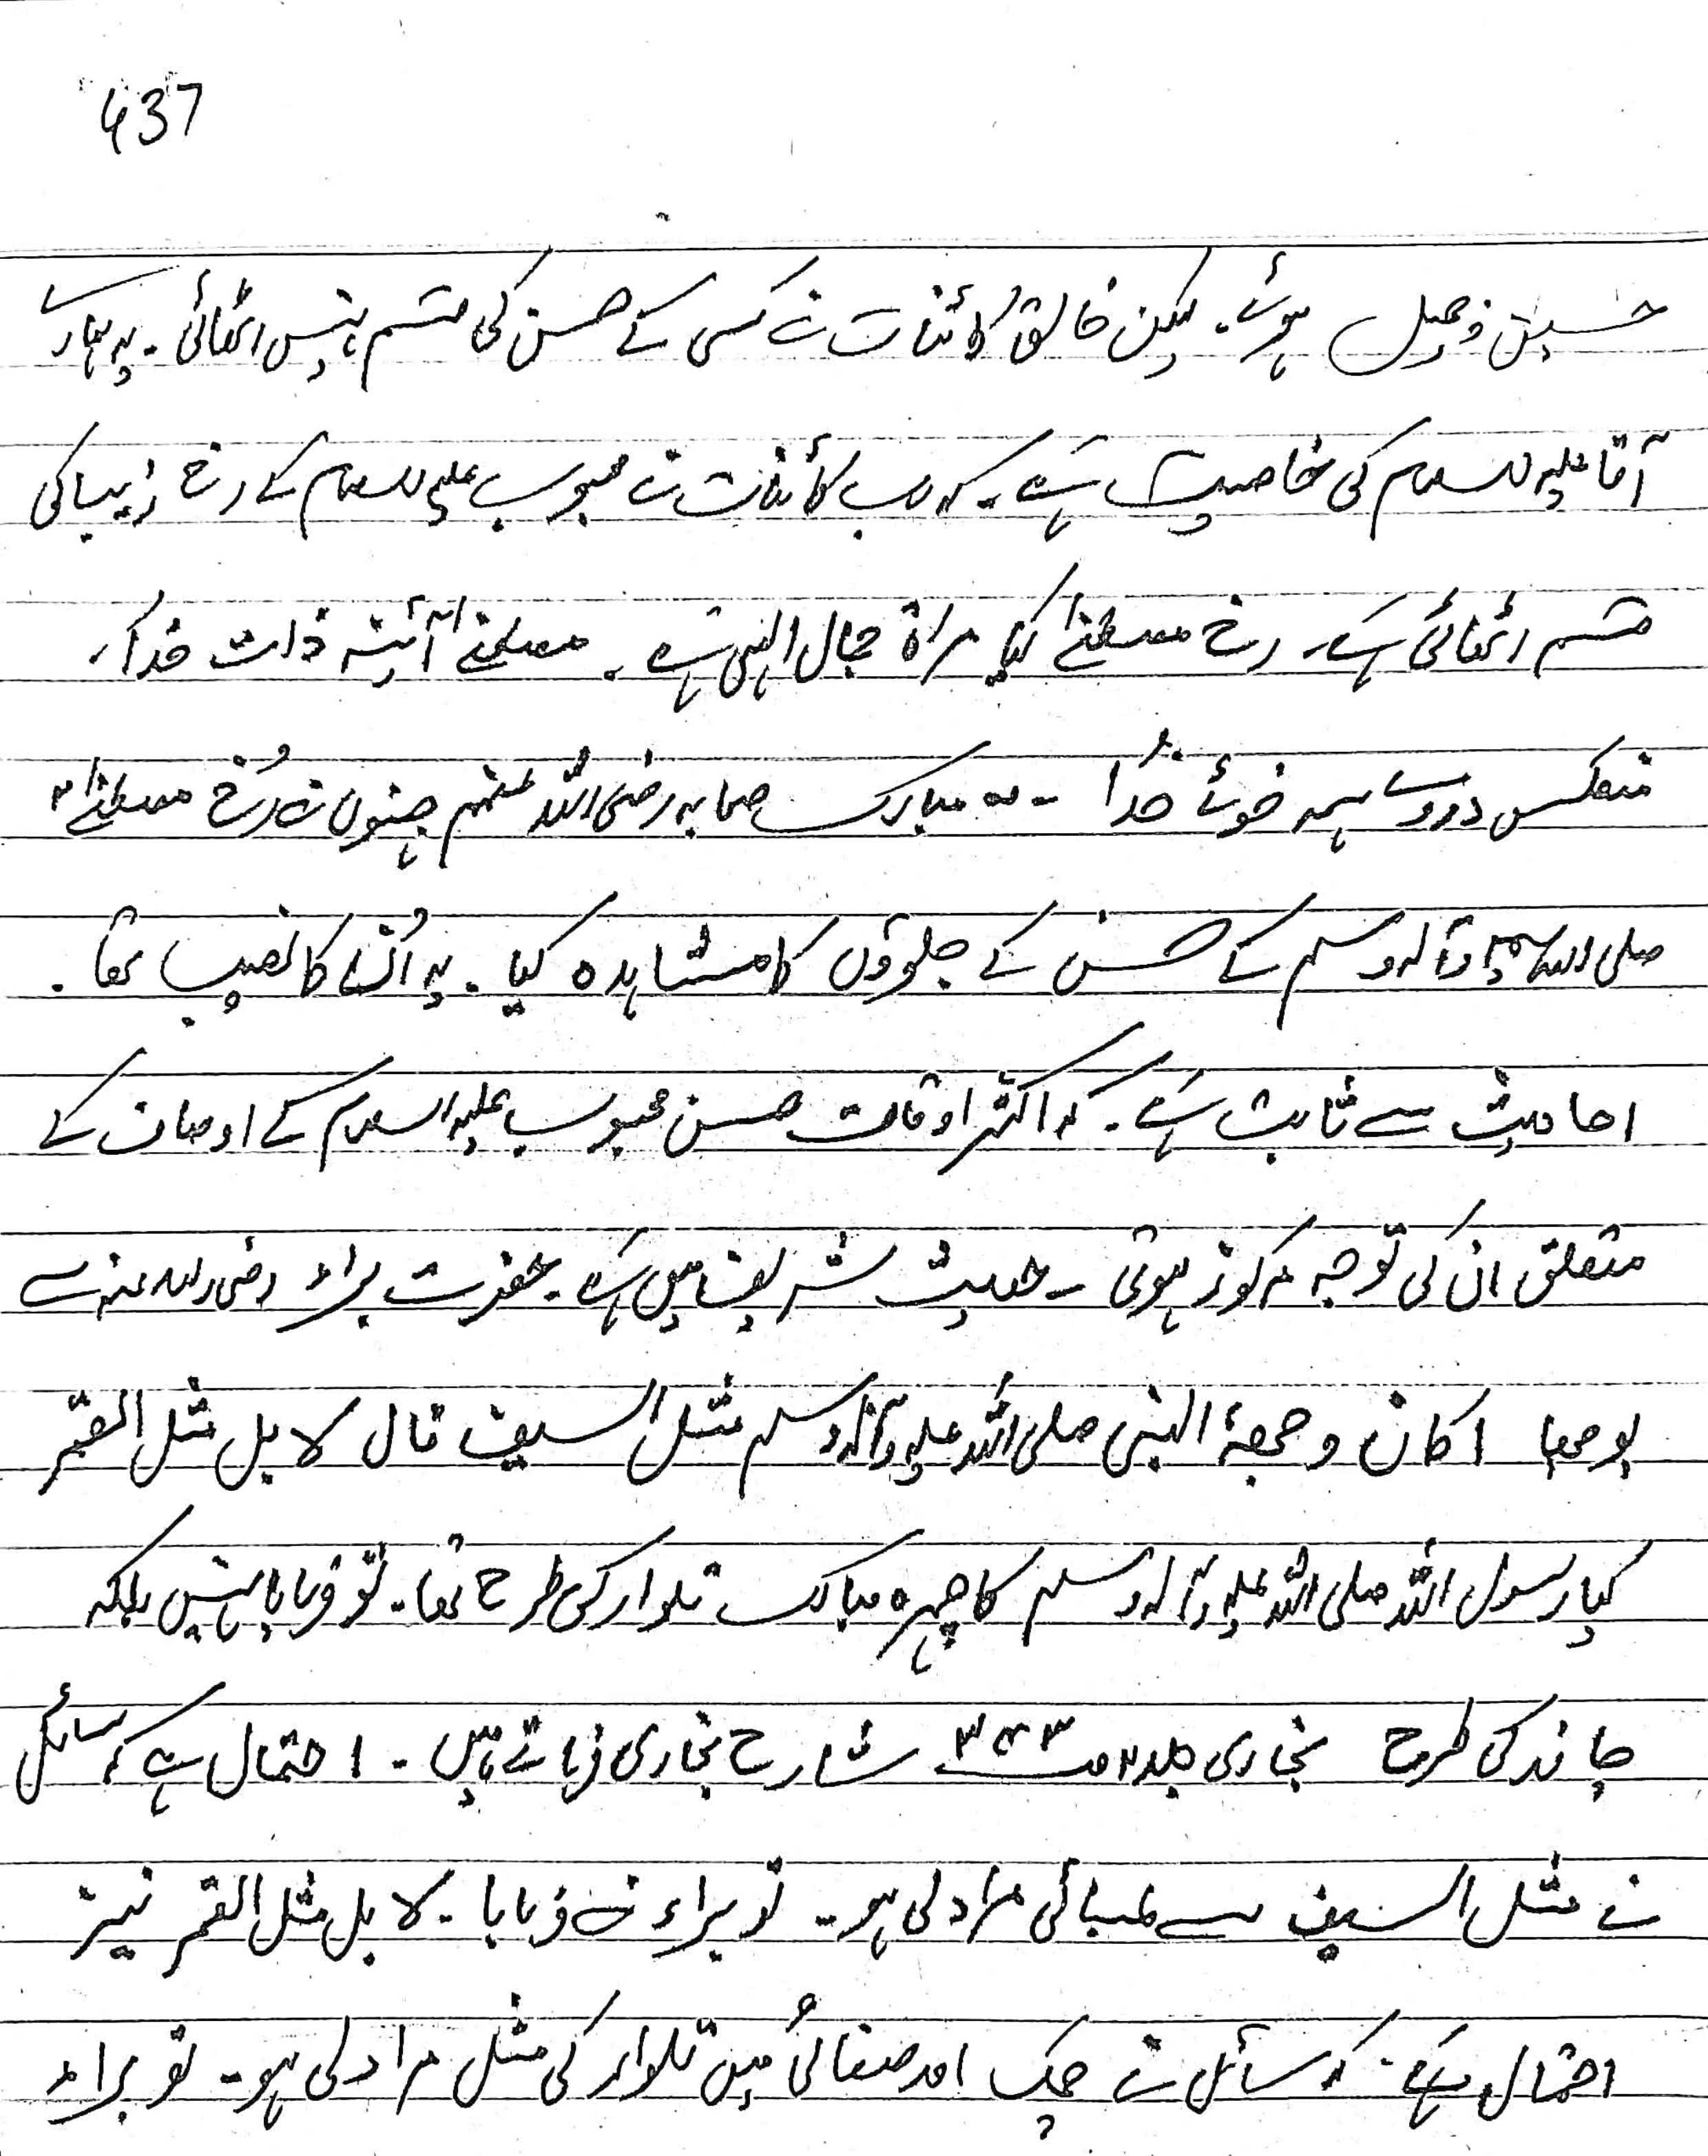 437
حسین و جمیل ہوئے۔ لیکن خالق کائنات نے کسی کے حسن کی قسم نہیں اٹھائی۔ یہ ہمارے
آقا علیہ السلام کی خاصیت ہے۔ کہ رب کائنات نے محبوب علیہ السلام کے رخ زیبا کی
قسم اٹھائی ہے۔ رخ مصطفےٰ کیا مراۃ جمال الہی ہے۔ مصطفےٰ آئینہ ذات خدا،
منعکس دروے ہمہ خوئے خدُا ۔ وہ مبارک صحابہ رضی اللہ عنہم جنہوں نے رُخ مصطفےٰ
صلی اللہ علیہ وآلہ وسلم کے حسن کے جلوؤں کا مشاہدہ کیا۔ یہ اُن کا نصیب تھا۔
احادیث سے ثابت ہے۔ کہ اکثر اوقات حسن محبوب علیہ السلام کے اوصاف کے
متعلق ان کی توجہ مرکوز ہوتی ۔ حدیث شریف میں ہے۔ حضرت براء رضی اللہ عنہ سے
پوچھا اکان وجھہ النبی صلی اللہ علیہ وآلہ وسلم مثل السیف قال لا بل مثل القمر
کیا رسول اللہ صلی اللہ علیہ وآلہ وسلم کا چہرہ مبارک تلوار کی طرح تھا۔ تو فرمایا نہیں بلکہ
چاند کی طرح بخاری جلد ۲ ص شارح بخاری فرماتے ہیں۔ احتمال ہے کہ سائل
نے مثل السیف سے لمبائی مراد لی ہو۔ تو براء نے فرمایا۔ لا بل مثل القمر نیز
احتمال ہے۔ کہ سائل نے چمک اور صفائی میں تلوار کی مثل مراد لی ہو۔ تو براء